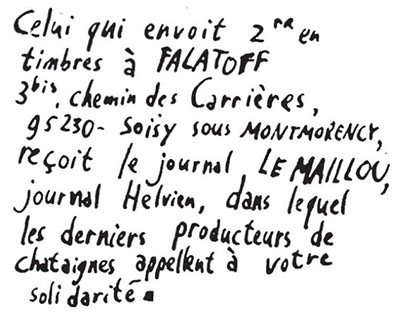 Celui qui envoit 2 NF en
timbres à FALATOFF
3bis, chemin des Carrières,
95230- Soisy sous MONTMORENCY,
reçoit le journal LE MAILLOU,
journal Helvien, dans lequel
les derniers producteurs de
chataignes appellent à votre
solidarité